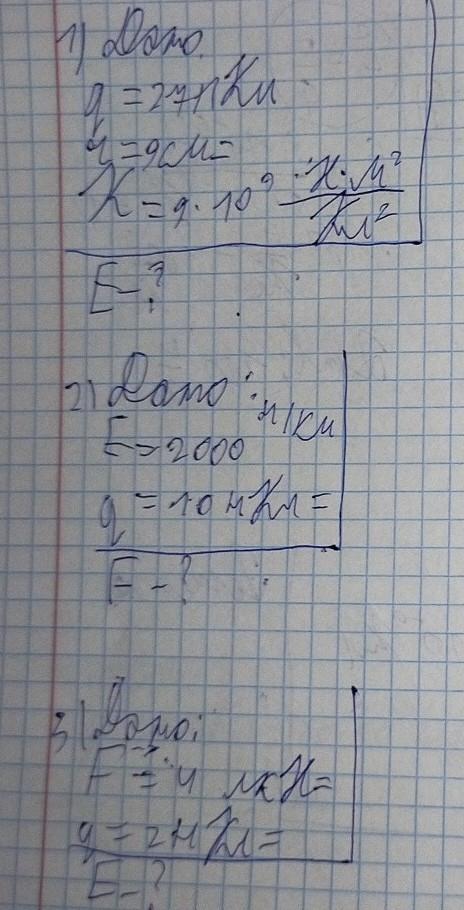 1) Дано.
q = 27 нКл
r = 9 см =
K = 9 · 10⁹ · Н·м²/Кл²
E - ?
2) Дано: Н/Кл
E = 2000
q = 10 нКл =
F - ?
3) Дано:
F = 4 мкН =
q = 2 нКл =
E - ?